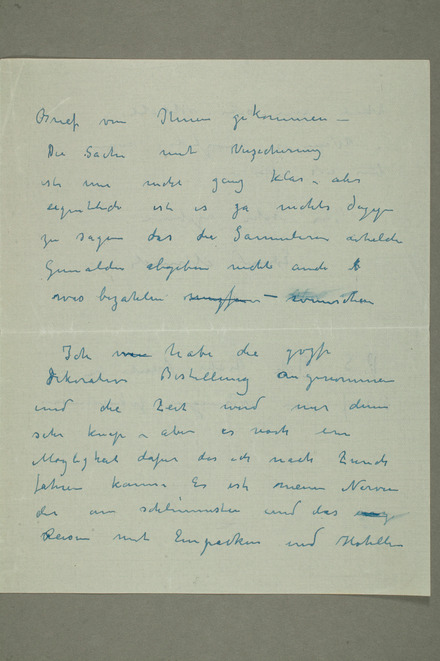 Brief von Ihnen gekommen —
Die Sache mit Verzeicherung
ist mir nicht ganz klar – aber
eigentlich ist es ja nichts dagegen
zu sagen das die Sammlern erhelde
Gemälden abgeben nicht ande
was bezahlen wünschen
Ich habe die große
Dekorativ Bestillung angenommen
und die Zeit wird mir dann
sehr knap – aber es noch ein
Möglighet dafür das ich nach Zürich
fahren kann. Es ist meine Nerven
die am schlimmsten und das
Reisen mit Einpacken und Hotellen